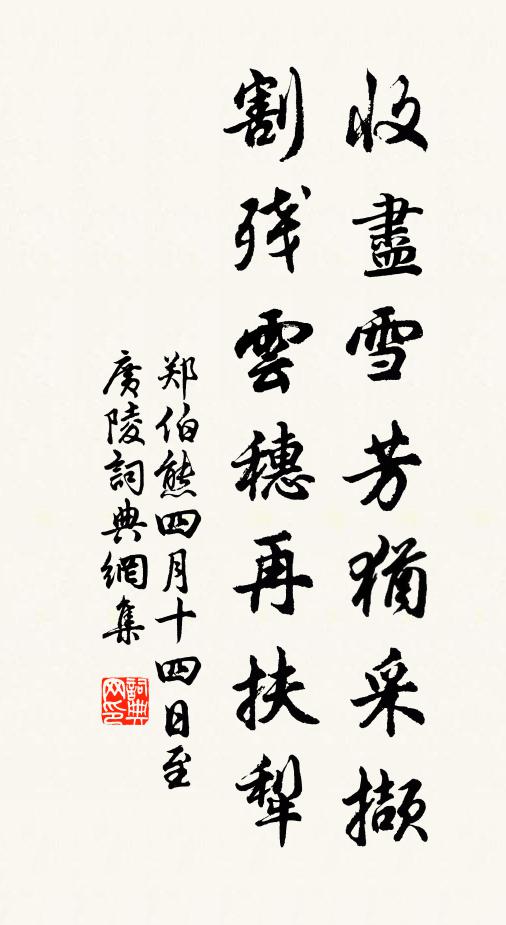 收盡雪芳猶采擷
割残雲穗再扶犁
郑伯熊四月十四日至
廣陵詞典網集
詞典
网印